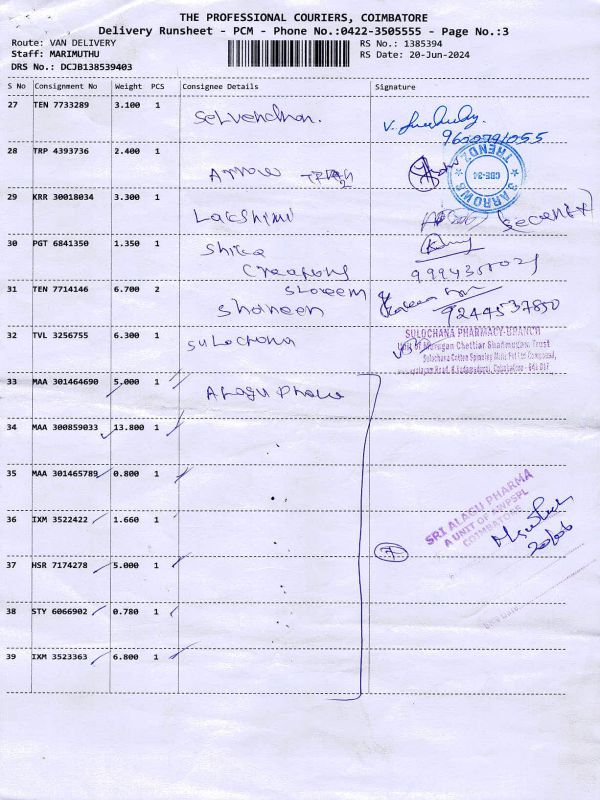 THE PROFESSIONAL COURIERS, COIMBATORE
Delivery Runsheet - PCM - Phone No.:0422-3505555 - Page No.:3
Route: VAN DELIVERY RS No.: 1385394
Staff: MARIMUTHU RS Date: 20-Jun-2024
DRS No.: DCJB138539403
S No Consignment No Weight PCS Consignee Details Signature
27 TEN 7733289 3.100 1 Selvendhan.
9620791055
28 TRP 4393736 2.400 1 Arrow
3 ARROWS TRENDZ CBE-34
29 KRR 30018034 3.300 1 Lakshimi
30 PGT 6841350 1.350 1 Shiva
Creations
31 TEN 7714146 6.700 2 Shareen
9244537850
32 TVL 3256755 6.300 1 Sulochana
SULOCHANA PHARMACY-UPANCH
Unit of Murugan Chettiar Shanmugam Trust
Sulochana Cotton Spinning Mills Pvt Ltd Compound,
Coimbatore - 641 017
33 MAA 301464690 5.000 1 Alagu Pharma
34 MAA 300859033 13.800 1
35 MAA 301465789 0.800 1
36 IXM 3522422 1.660 1
SRI ALAGU PHARMA
A UNIT OF
COIMBATORE
20/06
7
37 HSR 7174278 5.000 1
38 STY 6066902 0.780 1
39 IXM 3523363 6.800 1